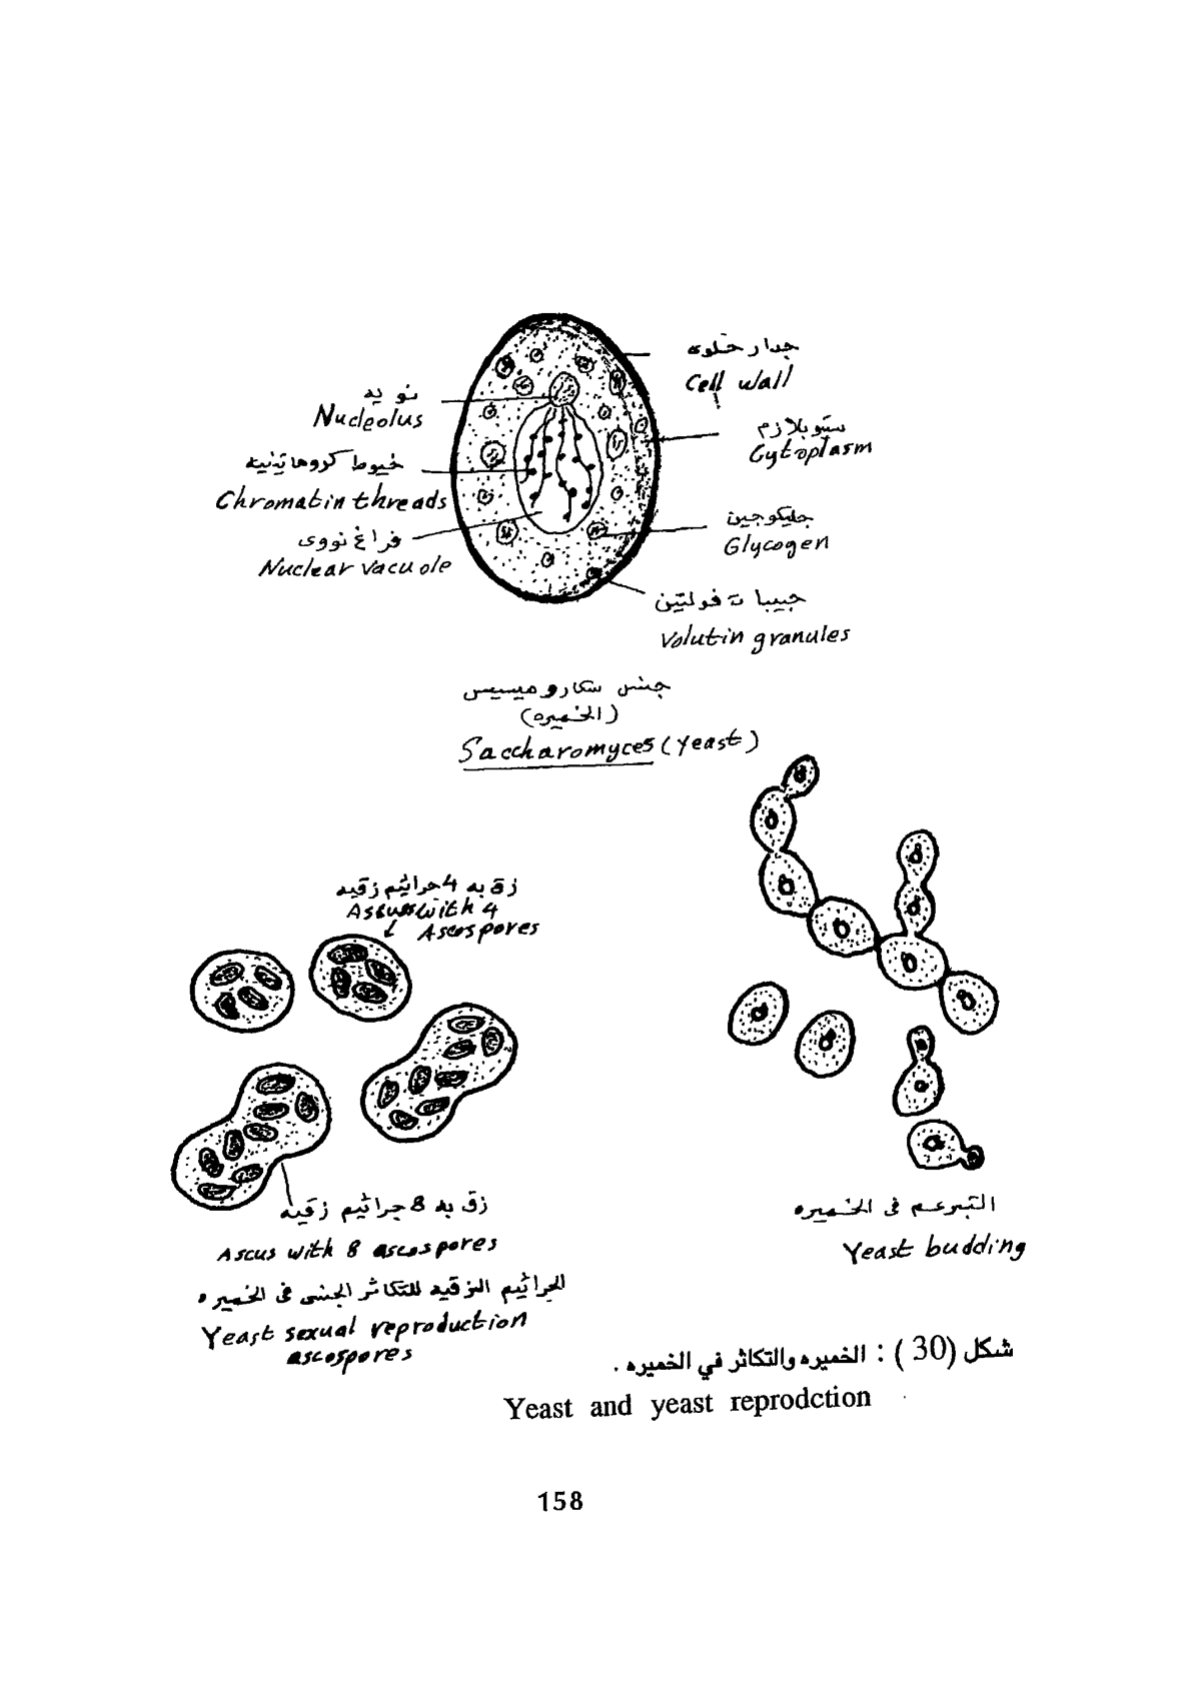 جدار خلوى
Cell wall
نويه
Nucleolus
ستوبلازم
Cytoplasm
خيوط كروماتينيه
Chromatin threads
جليكوجين
Glycogen
فراغ نووى
Nuclear vacuole
حبيبات فولتين
Volutin granules
جنس سكاروميسيس
(الخميره)
Saccharomyces (yeast)
زق به 4 جراثيم زقيه
Ascus with 4
Ascospores
زق به 8 جراثيم زقيه
Ascus with 8 ascospores
الجراثيم الزقيه للتكاثر الجنسى فى الخميره
Yeast sexual reproduction
ascospores
التبرعم فى الخميره
Yeast budding
شكل (30 ) : الخميره والتكاثر في الخميره .
Yeast and yeast reprodction
158